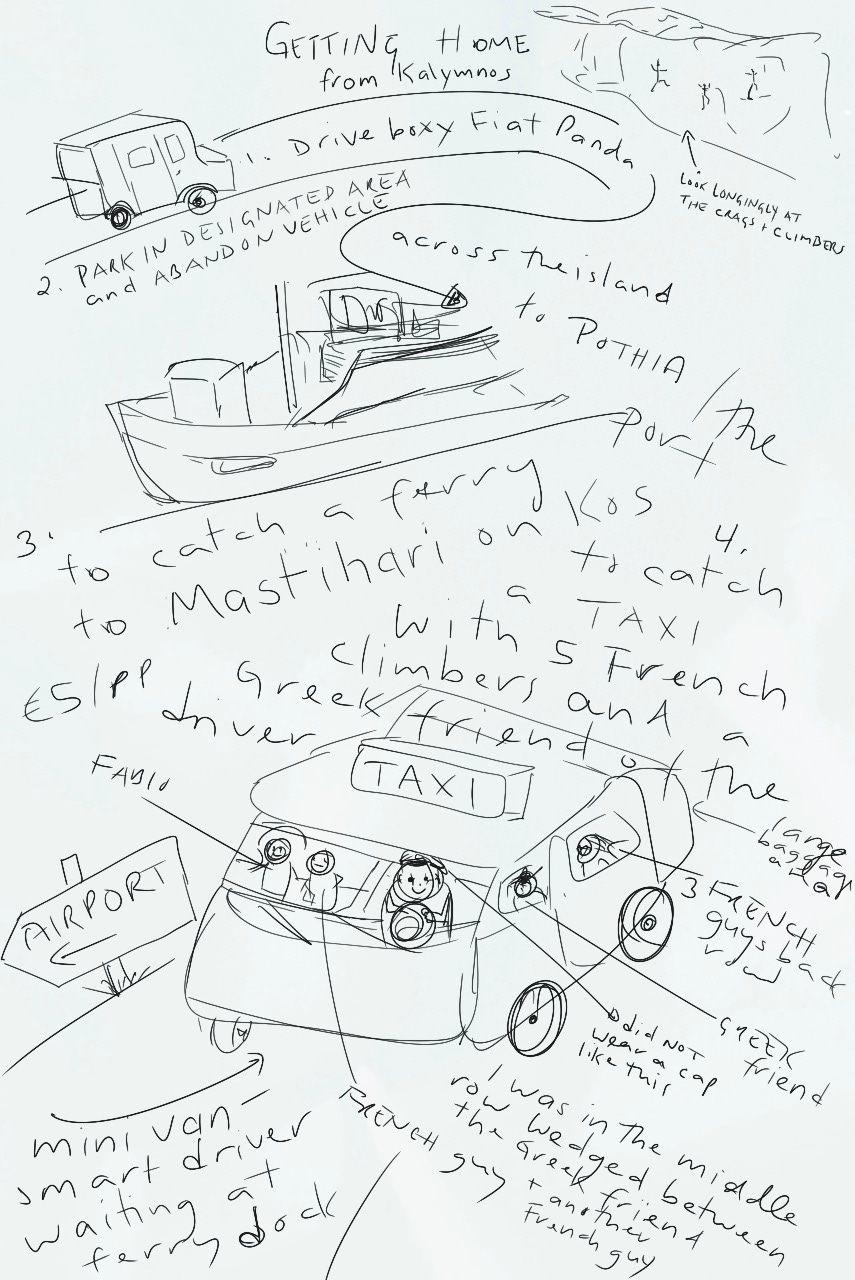 GETTING HOME
from Kalymnos
1. Drive boxy Fiat Panda
LOOK LONGINGLY AT
THE CRAGS + CLIMBERS
2. PARK IN DESIGNATED AREA
and ABANDON VEHICLE
across the island
to POTHIA
Port/the
3. to catch a ferry
to Mastihari on KOS
4. to catch
a TAXI
with 5 French
climbers and a
Greek friend of the
driver
€5/pp
TAXI
FABIO
large
baggage
area
AIRPORT
3 FRENCH
guys back
row
GREEK
friend
did NOT
wear a cap
like this
FRENCH
guy
I was in the middle
row wedged between
the Greek friend
+ another
French guy
mini van –
smart driver
waiting at
ferry dock